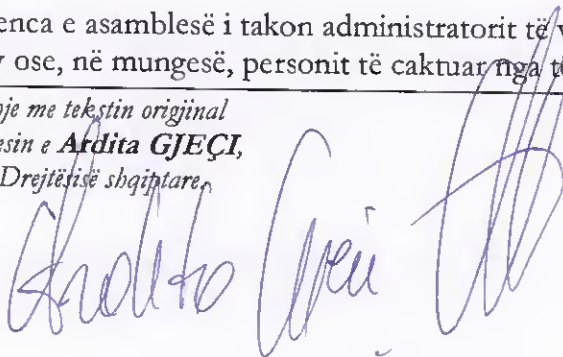 enca e asamblesë i takon administratorit të v
ose, në mungesë, personit të caktuar nga të
je me tekstin origjinal
esin e Ardita GJEÇI,
Drejtësisë shqiptare,
Ardita Gjeçi